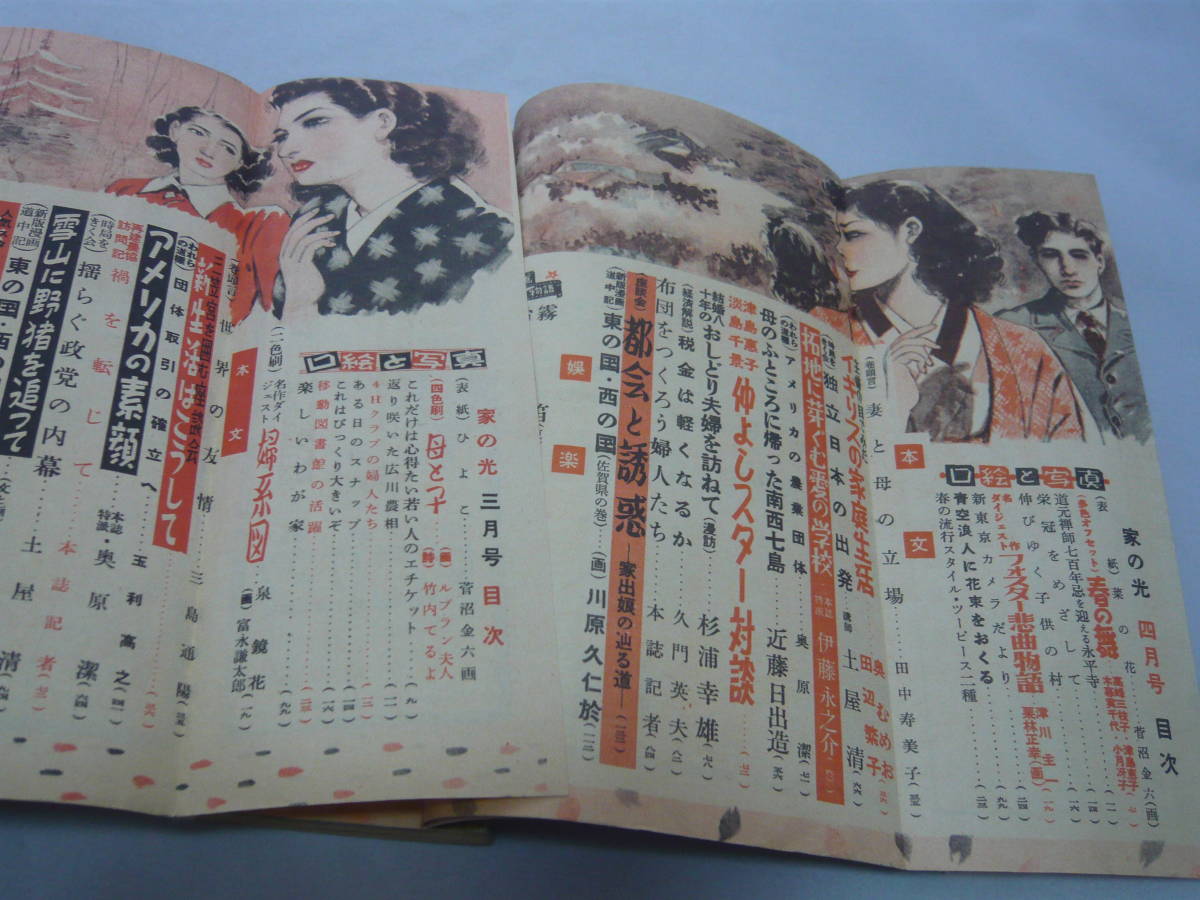 家の光 四月号 目次
口絵と写真
(表紙) 菜の花 菅沼金六(画)
(多色オフセット) 春の舞 高峰三枝子 木暮実千代 津島恵子 小月冴子
道元禅師七百年忌を迎える永平寺
栄冠をめざして
伸びゆく子供の村
名作ダイジェスト フォスター悲曲物語 津川主一 栗林正幸(画)
新東京カメラだより
青空浪人に花束をおくる
春の流行スタイル・ツーピース二種
本文
(巻頭言) 妻と母の立場 田中寿美子
イギリスの家庭生活 奥むめお 田辺繁子
独立日本の出発 土屋清
拓地に芽ぐむ愛の学校 本誌特派 伊藤永之介
(われらの道標) アメリカの農業団体 奥原潔
母のふところに帰った南西七島 近藤日出造
津島恵子 淡島千景 仲よしスター対談
結婚八十年のおしどり夫婦を訪ねて(漫訪) 杉浦幸雄
(経済解説) 税金は軽くなるか 久門英夫
布団をつくろう婦人たち 本誌記者
(座談会) 都会と誘惑 ―家出娘の辿る道―
(新版漫画道中記) 東の国・西の国(佐賀県の巻) (画)川原久仁於
娯楽
家の光 三月号 目次
口絵と写真
(表紙) ひよこ 菅沼金六画
(四色刷) 母と子 (画)ルブラン夫人 (詩)竹内てるよ
これだけは心得たい若い人のエチケット
返り咲いた広川農相
4Hクラブの婦人たち
ある日のスナップ
これはびっくり大きいぞ
移動図書館の活躍
楽しいわが家
(二色刷) 名作ダイジェスト 婦系図 泉鏡花 (画)富永謙太郎
本文
(巻頭言) 世界の友情 三島通陽
新生活はこうして
(われらの道標) 団体取引の確立へ 玉利高之
アメリカの素顔 本誌特派・奥原潔
再建農協訪問記 禍を転じて 本誌記者
(時局をきく会) 揺らぐ政党の内幕 土屋清
雪山に野猪を追って
(新版漫画道中記) 東の国・西の